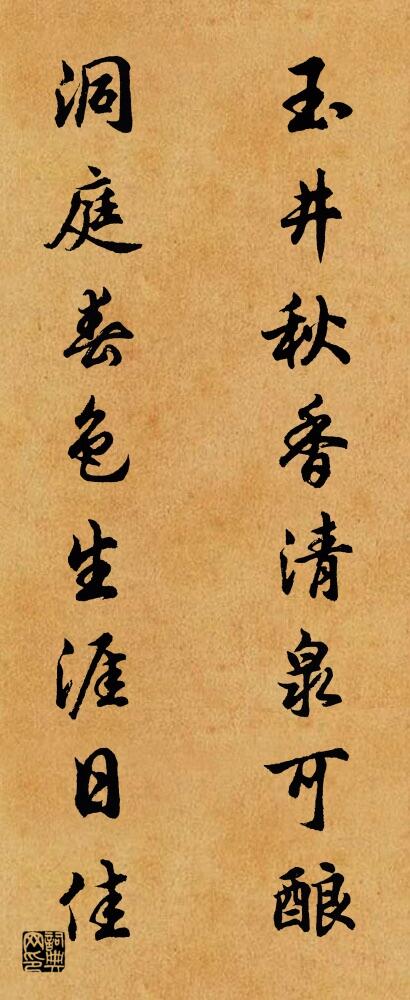 玉井秋香清泉可酿
洞庭春色生涯日佳
词典网印